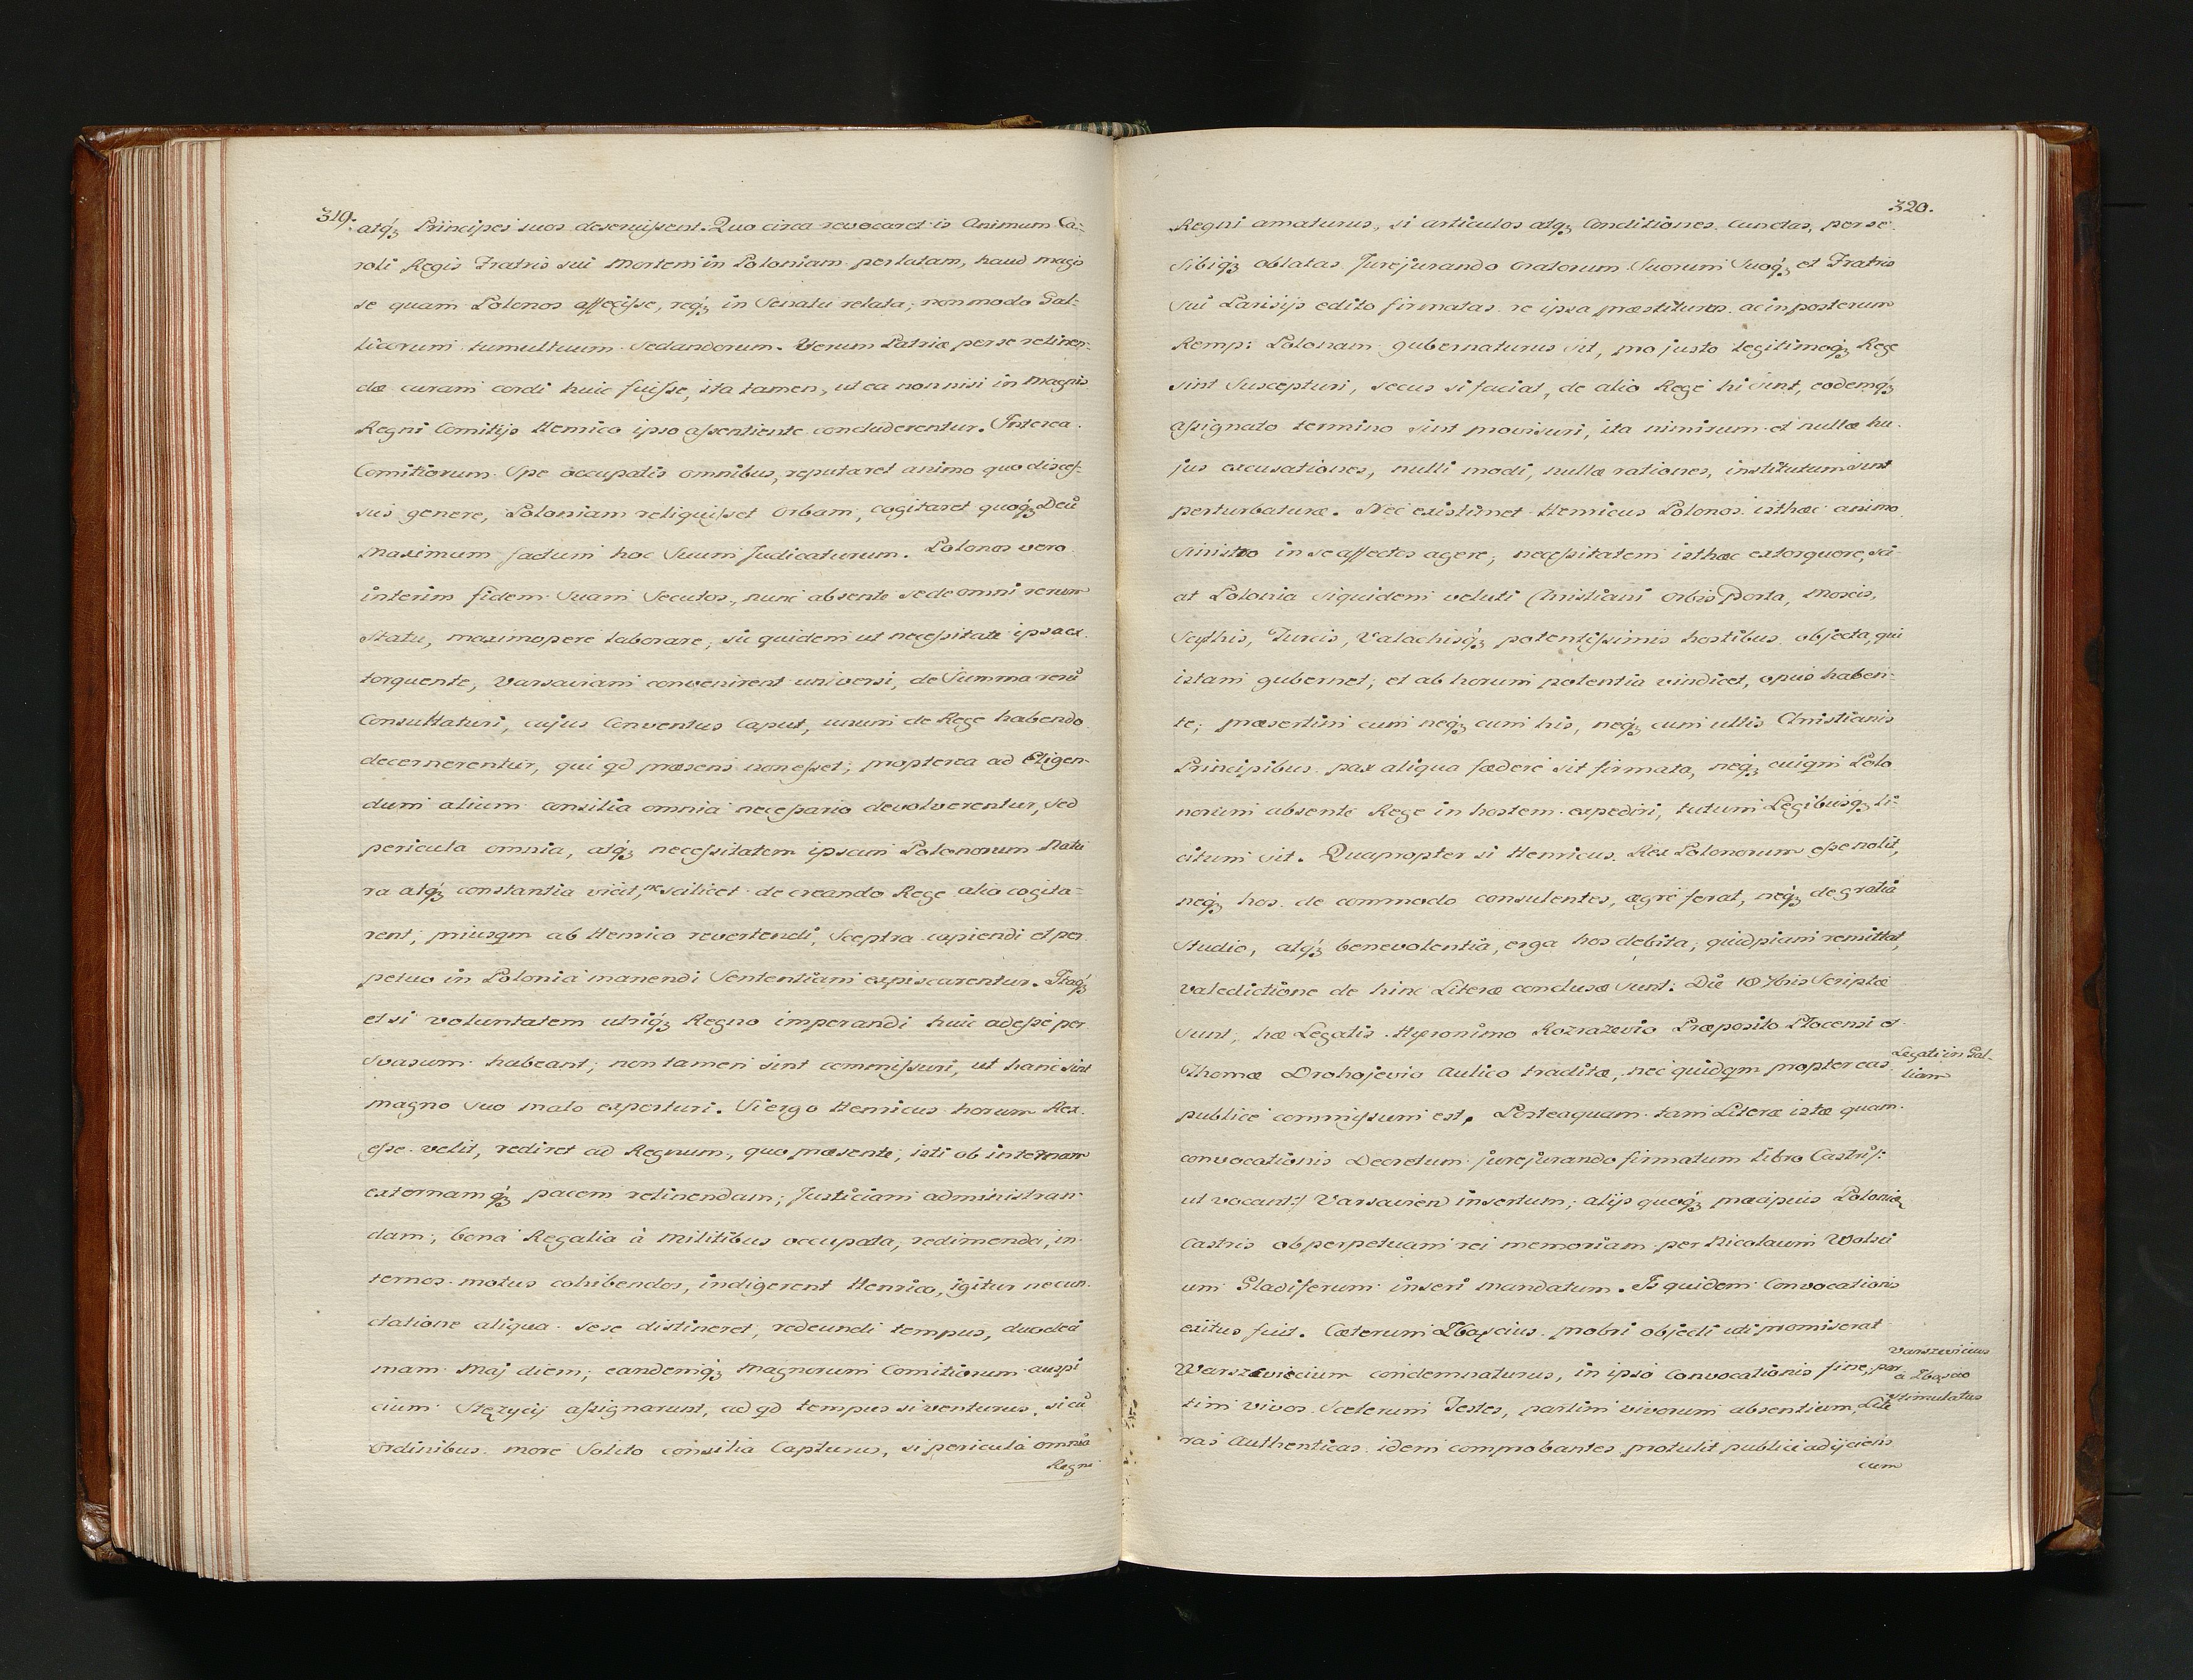 319.
atq́ꝫ Principes suos deseruiſsent. Quo circa revocaret is Animum Ca-
roli Regis Fratris sui Mortem in Poloniam perlatam, haud magis
se quam Polonos affeciſse, req́ꝫ in Senatu relata, non modo Gal-
licorum tumultuum Sedandorum. Verum Patriæ per se retinen-
dæ curam cordi huic fuiſse, ita tamen, ut ea non nisi in Magnis
Regni Comitijs Henrico ipso aſsentiente concluderentur. Interea
Comitiorum Spe occupatis omnibus, reputaret animo quo disceſ-
sus genere, Poloniam reliquiſset Orbam, cogitaret quoq́ꝫ Deū
Maximum factum hoc Suum Judicaturum. Polonos vero
interim fidem Suam Secutos, nunc absente se de omni rerum
Statu, maximopere laborare, sic quidem ut neceſsitate ipsa ex-
torquente, Varsaviam convenirent universi, de Summa rerū
Consultaturi, cujus Conventus Caput, unum de Rege habendo
decernerentur, qui qd præsens non eſset, propterea ad Eligen-
dum alium consilia omnia neceſsario devolverentur, sed
pericula omnia, atq́ꝫ neceſsitatem ipsam Polonorum Natu
ra atq́ꝫ constantia vicit, ne scilicet de creando Rege alio cogita-
rent, priusqm ab Henrico revertendi, Sceptra capiendi et per
petuo in Polonia manendi Sententiam expiscarentur. Itaq́ꝫ
et si voluntatem utriq́ꝫ Regno imperandi huic adeſse per
svasum habeant, non tamen sint commiſsuri, ut hanc sint
magno suo malo experturi. Si ergo Henricus horum Rex
eſse velit, rediret ad Regnum, quo præsente, isti ob internam
externamq́ꝫ pacem retinendam, Justiciam administran-
dam, bona Regalia à Militibus occupata, redimenda, in-
ternos motus cohibendos, indigerent Henrico, igitur ne cun
ctatione aliqua sese distineret, redeundi tempus, duodeci
mam Maj diem, eandemq́ꝫ Magnorum Comitiorum auspi
cium Stęzycij aſsignarunt, ad qd tempus si venturus, si cū
Ordinibus more Solito consilia Capturus, si pericula omnia
Regni
320.
Regni amaturus, si articulos atq́ꝫ Conditiones cunctas, per se
Sibiq́ꝫ oblatas Jurejurando oratorum Suorum Suoq́ꝫ et Fratris
Sui Parisijs edito firmatas re ipsa præstiturus ac in posterum
Remp: Polonam gubernaturus sit, pro justo legitimoq́ꝫ Rege
sint Suscepturi, secus si faciat, de alio Rege hi sint, eodemq́ꝫ
aſsignato termino sint provisuri, ita nimirum et nullæ hu-
jus excusationes, nulli modi, nullæ rationes, institutum sint
perturbaturæ. Nec existimet Henricus Polonos isthæc animo
Sinistro in se affectos agere, neceſsitatem isthæc extorquere, sci
at Polonia siquidem veluti Christiani Orbis Porta, Moscis,
Scythis, Turcis, Valachisq́ꝫ potentiſsimis hostibus objecta, qui
istam gubernet, et ab horum potentia vindicet, opus haben-
te, præsertim cum neq́ꝫ cum his, neq́ꝫ cum ullis Christianis
Principibus pax aliqua fædere sit firmata, neq́ꝫ cuiqm Polo
norum absente Rege in hostem expediri, tutum Legibusq́ꝫ li-
citum sit. Quapropter si Henricus Rex Polonorum eſse nolit,
neq́ꝫ hos de commodo consulentes, ægrè ferat, neq́ꝫ de gratiâ
Studio, atq́ꝫ benevolentiâ, erga hos debita, quidpiam remittat,
valedictione de hinc Literæ conclusæ sunt. Die 18 7bris Scriptæ
Sunt, hæ Legatis Hyeronimo Rozrazevio Præposito Plocensi et
Thomæ Drohojevio Aulico traditæ, nec quidqm propter eas
Legati in Gal-
liam
publice commiſsum est. Posteaquam tam Literæ istæ quam
convocationis Decretum jurejurando firmatum libro Castri/:
ut vocant:/ Varsavien insertum, alijs quoq́ꝫ præcipuis Poloniæ
Castris ob perpetuam rei memoriam per Nicolaum Wolsci
um Gladiferum inseri mandatum. Is quidem Convocationis
exitus fuit. Cæterum Zbąscius probri objecti uti promiserat
Varszevicius
Warszeviecium condemnaturus, in ipso Convocationis fine, par
a Zbąscio
tim vivos Scelerum Testes, partim vivorum absentium, Lite
stimulatus
ras Authenticas idem comprobantes protulit publice adijciens
cum